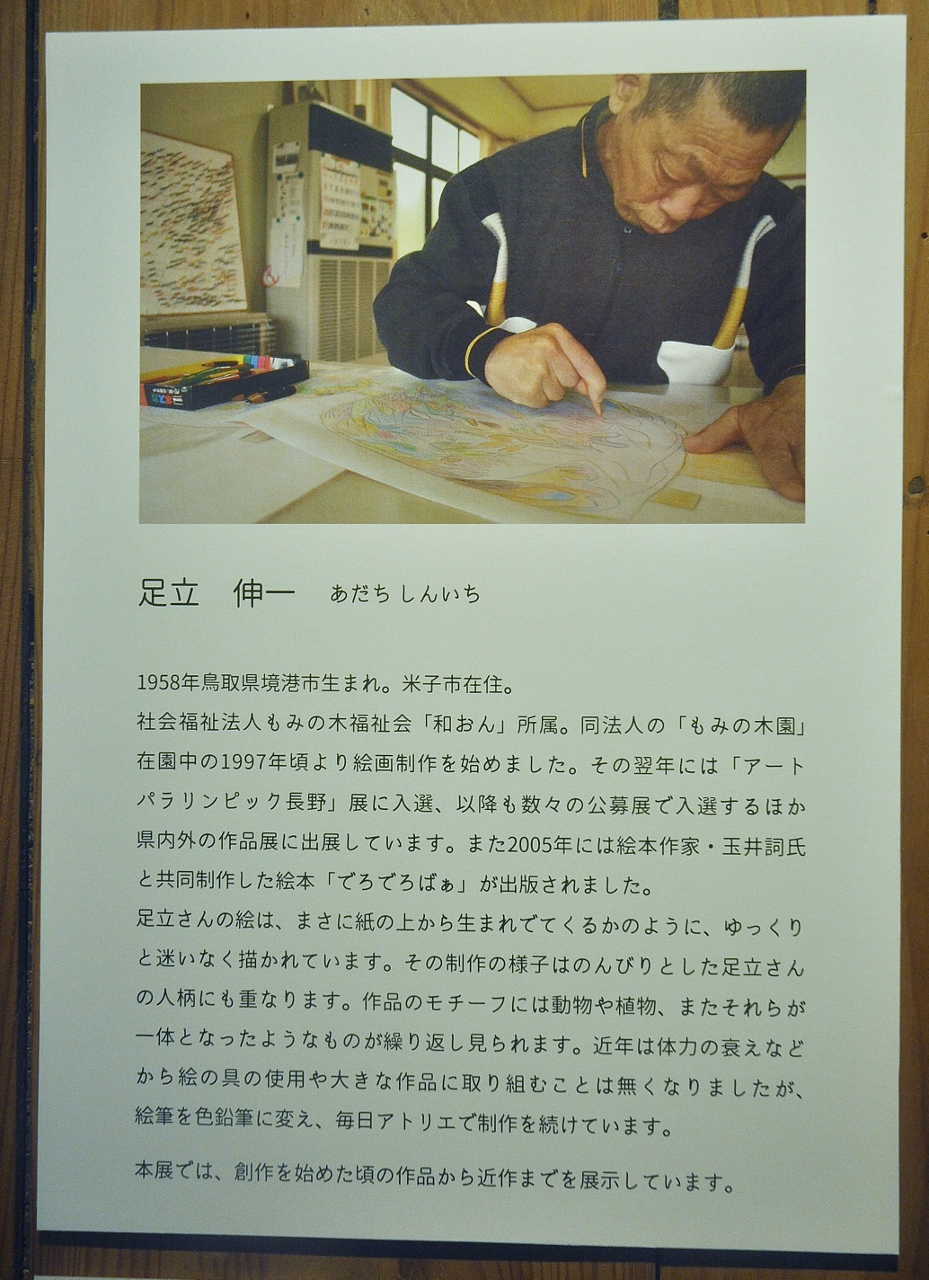 足立　伸一　あだち しんいち
1958年鳥取県境港市生まれ。米子市在住。
社会福祉法人もみの木福祉会「和おん」所属。同法人の「もみの木園」
在園中の1997年頃より絵画制作を始めました。その翌年には「アート
パラリンピック長野」展に入選、以降も数々の公募展で入選するほか
県内外の作品展に出展しています。また2005年には絵本作家・玉井詞氏
と共同制作した絵本「でろでろばぁ」が出版されました。
足立さんの絵は、まさに紙の上から生まれでてくるかのように、ゆっくり
と迷いなく描かれています。その制作の様子はのんびりとした足立さん
の人柄にも重なります。作品のモチーフには動物や植物、またそれらが
一体となったようなものが繰り返し見られます。近年は体力の衰えなど
から絵の具の使用や大きな作品に取り組むことは無くなりましたが、
絵筆を色鉛筆に変え、毎日アトリエで制作を続けています。
本展では、創作を始めた頃の作品から近作までを展示しています。